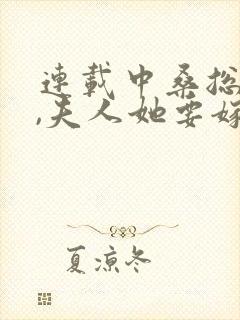 連載中桑
,夫人她要嫁
夏涼冬